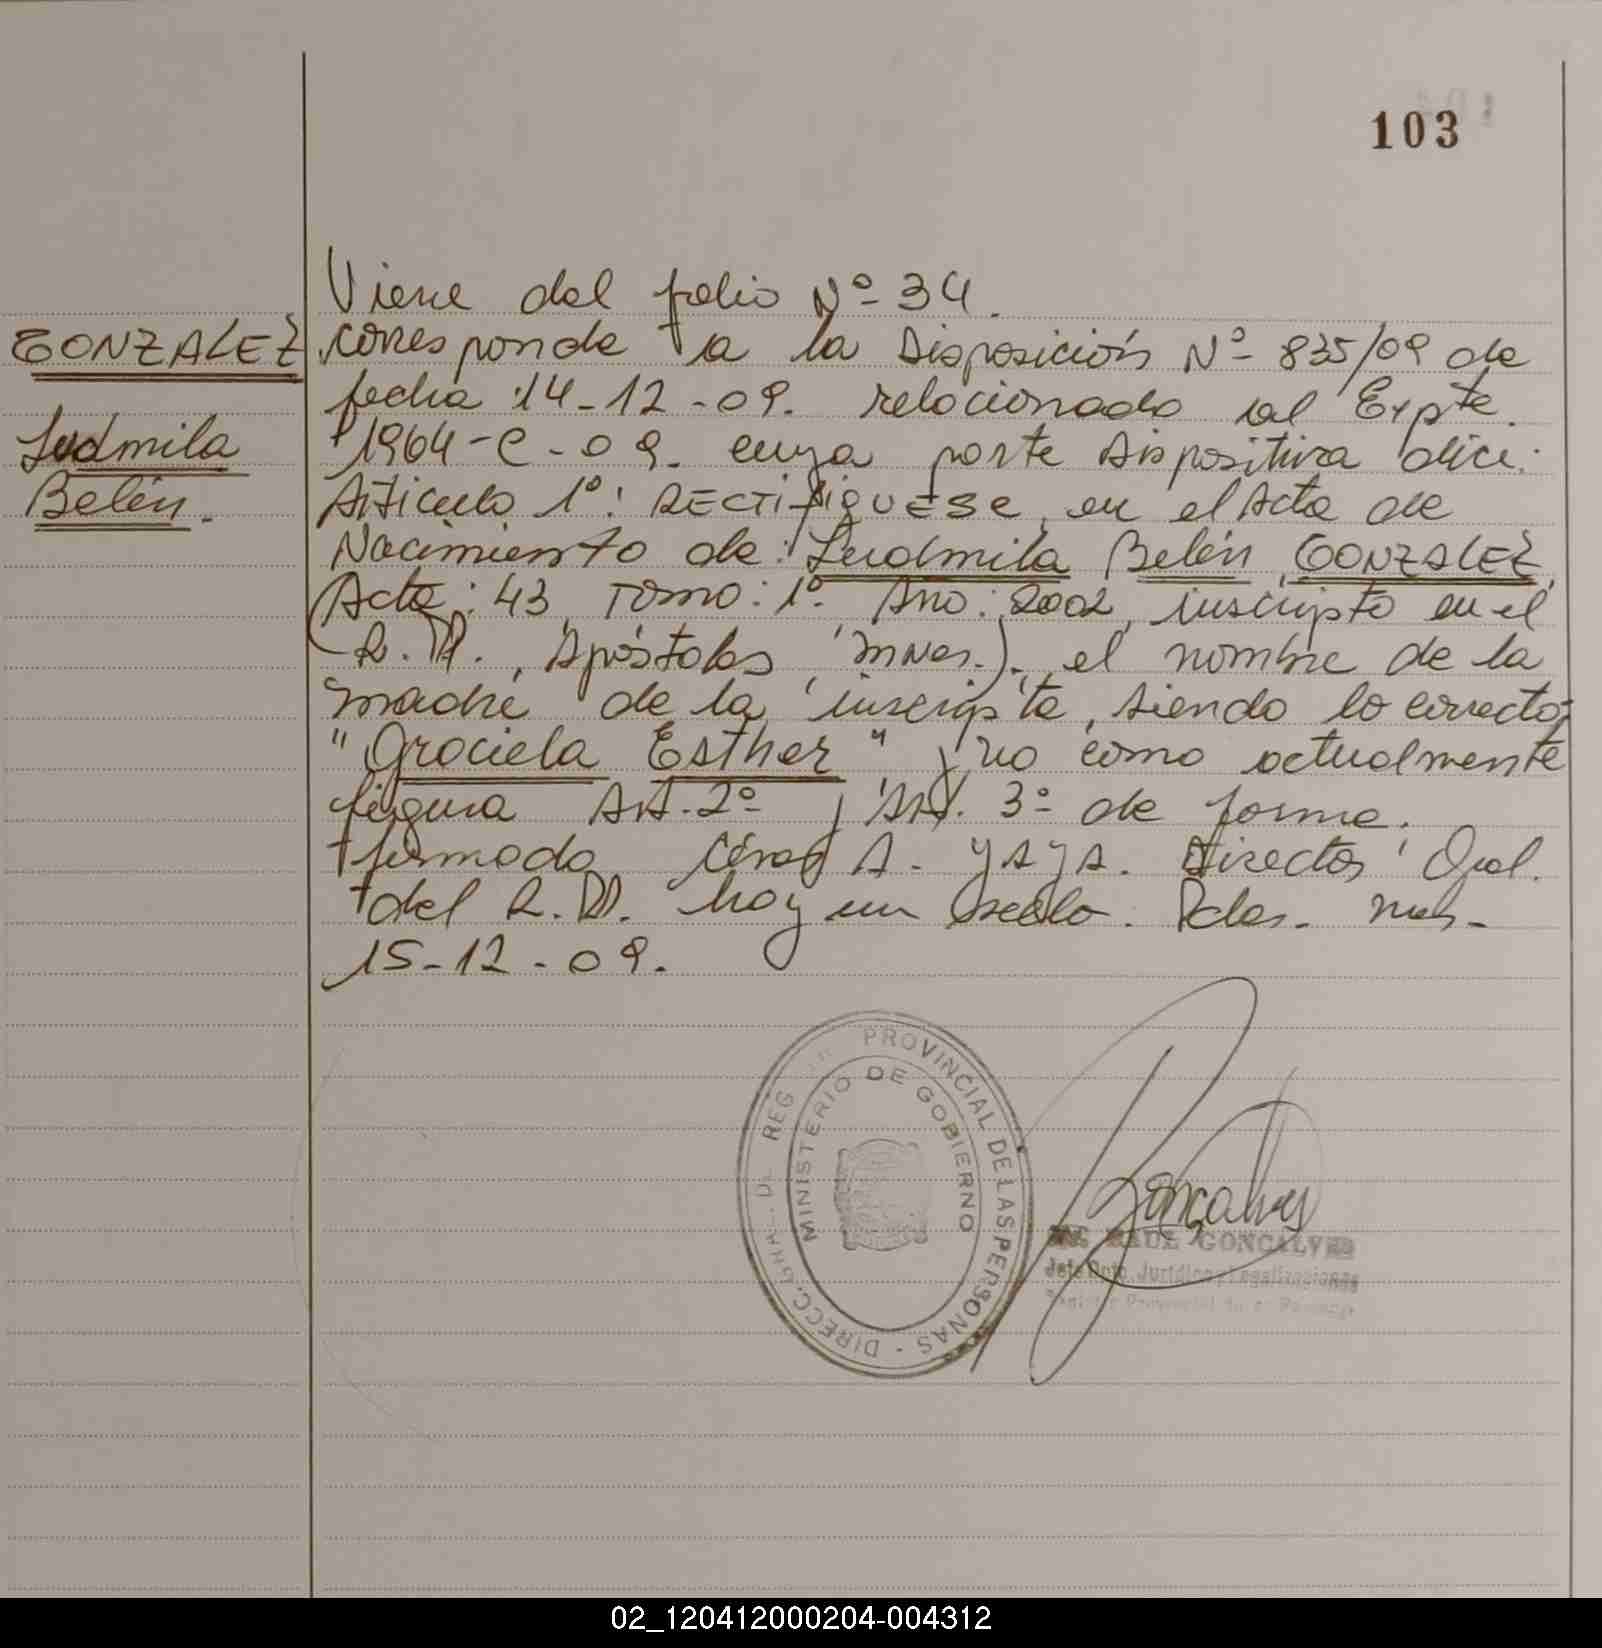 103
Viene del folio Nº 34.
GONZALEZ
Ludmila
Belén.
corresponde a la Disposición Nº 835/09 de
fecha 14-12-09. relacionado al Expte.
1964-C-09. cuya parte dispositiva dice:
Artículo 1º: RECTIFIQUESE, en el Acta de
Nacimiento de: Ludmila Belén GONZALEZ,
(Acta: 43, Tomo: 1º. Año: 2002, inscripto en el
R.P., Apóstoles, Mnes.), el nombre de la
madre de la inscripta, siendo lo correcto:
"Graciela Esther" y no como actualmente
figura Art. 2º y Art. 3º de forma.
firmado A. YSYA. Director Gral.
del R.P. hay un sello. Pdas. Mnes.
15-12-09.
DIRECC. GRAL. DEL REG. PROVINCIAL DE LAS PERSONAS -
MINISTERIO DE GOBIERNO
Gonçalves
RAUL GONCALVES
Jefe Dpto.
02_120412000204-004312